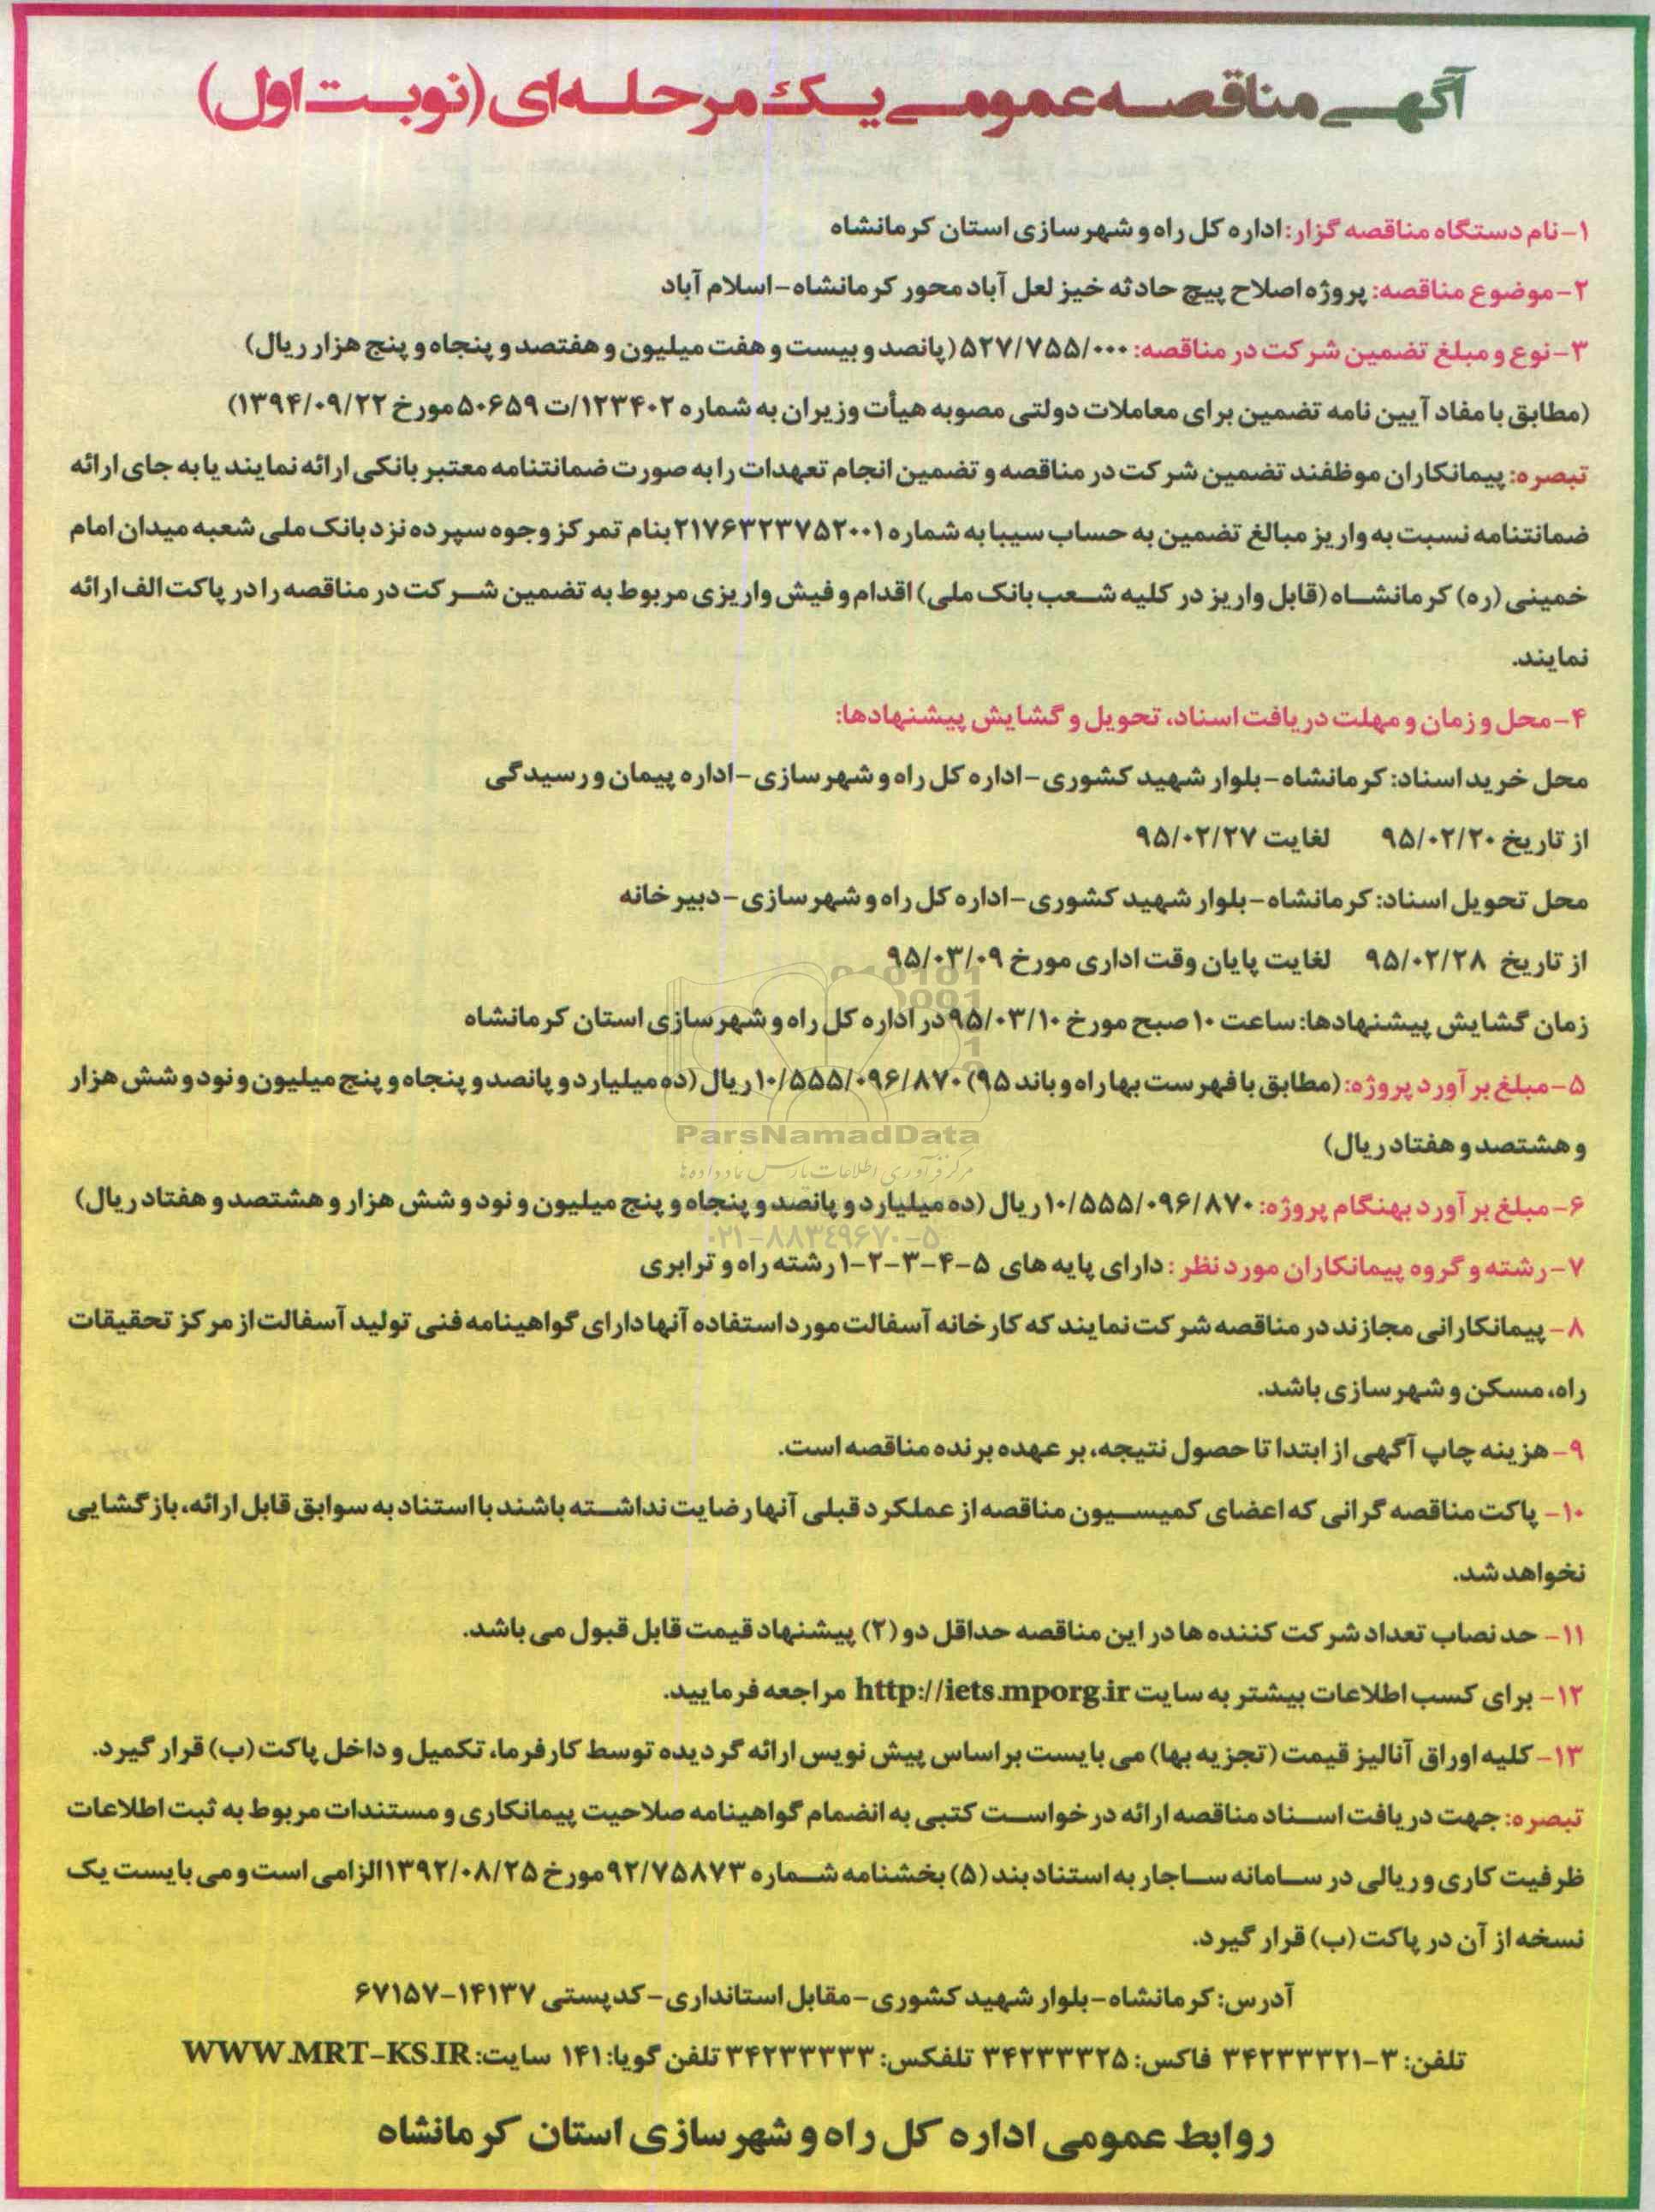 آگهی مناقصه عمومی یک مرحله‌ای (نوبت اول)
۱-نام دستگاه مناقصه گزار: اداره کل راه و شهرسازی استان کرمانشاه
۲-موضوع مناقصه: پروژه اصلاح پیچ حادثه خیز لعل آباد محور کرمانشاه-اسلام آباد
۳-نوع و مبلغ تضمین شرکت در مناقصه: ۵۲۷/۷۵۵/۰۰۰ (پانصد و بیست و هفت میلیون و هفتصد و پنجاه و پنج هزار ریال)
(مطابق با مفاد آیین نامه تضمین برای معاملات دولتی مصوبه هیأت وزیران به شماره ۱۲۳۴۰۲/ت ۵۰۶۵۹ مورخ ۱۳۹۴/۰۹/۲۲)
تبصره: پیمانکاران موظفند تضمین شرکت در مناقصه و تضمین انجام تعهدات را به صورت ضمانتنامه معتبر بانکی ارائه نمایند یا به جای ارائه
ضمانتنامه نسبت به واریز مبالغ تضمین به حساب سیبا به شماره ۲۱۷۶۳۲۳۷۵۲۰۰۱ بنام تمرکز وجوه سپرده نزد بانک ملی شعبه میدان امام
خمینی (ره) کرمانشاه (قابل واریز در کلیه شعب بانک ملی) اقدام و فیش واریزی مربوط به تضمین شرکت در مناقصه را در پاکت الف ارائه
نمایند.
۴-محل و زمان و مهلت دریافت اسناد، تحویل و گشایش پیشنهادها:
محل خرید اسناد: کرمانشاه-بلوار شهید کشوری-اداره کل راه و شهرسازی-اداره پیمان و رسیدگی
از تاریخ ۹۵/۰۲/۲۰ لغایت ۹۵/۰۲/۲۷
محل تحویل اسناد: کرمانشاه-بلوار شهید کشوری-اداره کل راه و شهرسازی-دبیرخانه
از تاریخ ۹۵/۰۲/۲۸ لغایت پایان وقت اداری مورخ ۹۵/۰۳/۰۹
زمان گشایش پیشنهادها: ساعت ۱۰ صبح مورخ ۹۵/۰۳/۱۰ در اداره کل راه و شهرسازی استان کرمانشاه
۵-مبلغ برآورد پروژه: (مطابق با فهرست بها راه و باند ۹۵) ۱۰/۵۵۵/۰۹۶/۸۷۰ ریال (ده میلیارد و پانصد و پنجاه و پنج میلیون و نود و شش هزار
و هشتصد و هفتاد ریال)
ParsNamadData
مرکز فرآوری اطلاعات پارس نماد داده ها
۶-مبلغ برآورد بهنگام پروژه: ۱۰/۵۵۵/۰۹۶/۸۷۰ ریال (ده میلیارد و پانصد و پنجاه و پنج میلیون و نود و شش هزار و هشتصد و هفتاد ریال)
۰۲۱-۸۸۳۴۹۶۷۰-۵
۷-رشته و گروه پیمانکاران مورد نظر: دارای پایه های ۵-۴-۳-۲-۱ رشته راه و ترابری
۸-پیمانکارانی مجازند در مناقصه شرکت نمایند که کارخانه آسفالت مورد استفاده آنها دارای گواهینامه فنی تولید آسفالت از مرکز تحقیقات
راه، مسکن و شهرسازی باشد.
۹-هزینه چاپ آگهی از ابتدا تا حصول نتیجه، بر عهده برنده مناقصه است.
۱۰- پاکت مناقصه گرانی که اعضای کمیسیون مناقصه از عملکرد قبلی آنها رضایت نداشته باشند با استناد به سوابق قابل ارائه، بازگشایی
نخواهد شد.
۱۱- حد نصاب تعداد شرکت کننده ها در این مناقصه حداقل دو (۲) پیشنهاد قیمت قابل قبول می باشد.
۱۲- برای کسب اطلاعات بیشتر به سایت http://iets.mporg.ir مراجعه فرمایید.
۱۳-کلیه اوراق آنالیز قیمت (تجزیه بها) می بایست براساس پیش نویس ارائه گردیده توسط کارفرما، تکمیل و داخل پاکت (ب) قرار گیرد.
تبصره: جهت دریافت اسناد مناقصه ارائه درخواست کتبی به انضمام گواهینامه صلاحیت پیمانکاری و مستندات مربوط به ثبت اطلاعات
ظرفیت کاری و ریالی در سامانه ساجار به استناد بند (۵) بخشنامه شماره ۹۲/۷۵۸۷۳ مورخ ۱۳۹۲/۰۸/۲۵ الزامی است و می بایست یک
نسخه از آن در پاکت (ب) قرار گیرد.
آدرس: کرمانشاه-بلوار شهید کشوری-مقابل استانداری-کدپستی ۱۴۱۳۷-۶۷۱۵۷
تلفن: ۳-۳۴۲۳۳۳۲۱ فاکس: ۳۴۲۳۳۳۲۵ تلفکس: ۳۴۲۳۳۳۳۳ تلفن گویا: ۱۴۱ سایت: WWW.MRT-KS.IR
روابط عمومی اداره کل راه و شهرسازی استان کرمانشاه